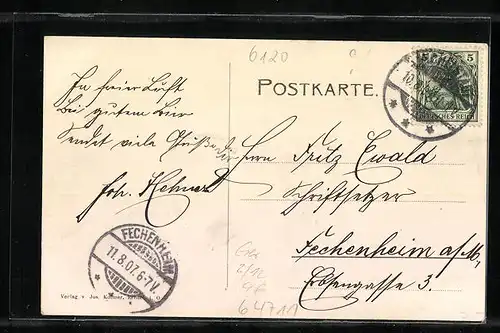 6120
POSTKARTE.
5
DEUTSCHES REICH
In freier Luft
Bei gutem Bier
Sendet viele Grüße
Joh.
Herrn Fritz Ewald
Schriftsetzer
Fechenheim a/M,
Erbsengasse 3.
FECHENHEIM
11.8.07.6-7V.
Verlag v. Jos.
64711